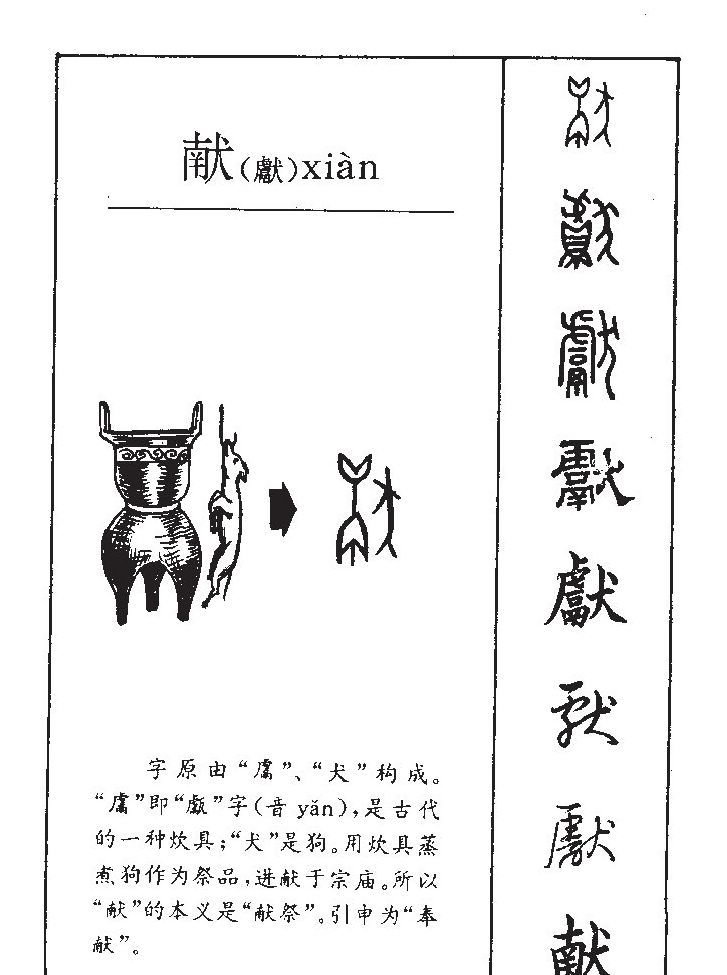 献(獻)xiàn
字原由“鬳”、“犬”构成。
“鬳”即“甗”字(音yǎn),是古代
的一种炊具;“犬”是狗。用炊具蒸
煮狗作为祭品,进献于宗庙。所以
“献”的本义是“献祭”。引申为“奉
献”。
獻
献